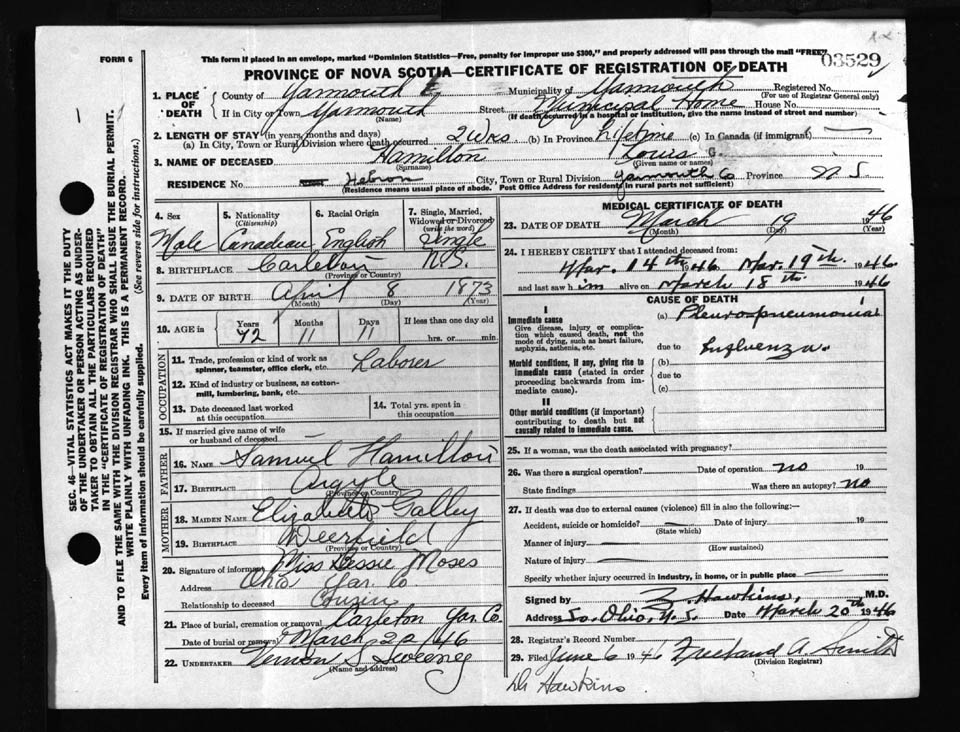 FORM 6
This form if placed in an envelope, marked "Dominion Statistics—Free, penalty for improper use $300," and properly addressed will pass through the mail "FREE"
03529
PROVINCE OF NOVA SCOTIA—CERTIFICATE OF REGISTRATION OF DEATH
1. PLACE OF DEATH
County of Yarmouth
Municipality of Yarmouth
Registered No.
(For use of Registrar General only)
If in City or Town Yarmouth
(Name)
Street Municipal Home House No.
(If death occurred in hospital or institution, give the name instead of street and number)
2. LENGTH OF STAY (in years, months and days)
(a) In City, Town or Rural Division where death occurred 2 Wks (b) In Province Lifetime (c) In Canada (if immigrant) —
3. NAME OF DECEASED Hamilton Louis G.
(Surname) (Given name or names)
RESIDENCE No. Hebron City, Town or Rural Division Yarmouth Co Province N S
(Residence means usual place of abode. Post Office Address for residents in rural parts not sufficient)
SEC. 46—VITAL STATISTICS ACT MAKES IT THE DUTY
OF THE UNDERTAKER OR PERSON ACTING AS UNDER-
TAKER TO OBTAIN ALL THE PARTICULARS REQUIRED
IN THE "CERTIFICATE OF REGISTRATION OF DEATH"
AND TO FILE THE SAME WITH THE DIVISION REGISTRAR WHO SHALL ISSUE THE BURIAL PERMIT.
WRITE PLAINLY WITH UNFADING INK. THIS IS A PERMANENT RECORD.
Every item of information should be carefully supplied. (See reverse side for instructions.)
4. Sex
Male
5. Nationality
(Citizenship)
Canadian
6. Racial Origin
English
7. Single, Married,
Widowed or Divorced
(write the word)
Single
8. BIRTHPLACE Carleton N.S.
(Province or Country)
9. DATE OF BIRTH April 8 1873
(Month) (Day) (Year)
10. AGE in
Years Months Days If less than one day old
72 11 11 hrs. or min.
OCCUPATION
11. Trade, profession or kind of work as
spinner, teamster, office clerk, etc. Laborer
12. Kind of industry or business, as cotton-
mill, lumbering, bank, etc.
13. Date deceased last worked
at this occupation
14. Total yrs. spent in
this occupation
15. If married give name of wife
or husband of deceased —
FATHER
16. NAME Samuel Hamilton
17. BIRTHPLACE Argyle
(Province or Country)
MOTHER
18. MAIDEN NAME Elizabeth Galley
19. BIRTHPLACE Deerfield
(Province or Country)
20. Signature of informant Miss Bessie Moses
Address Ohio Yar. Co
Relationship to deceased Cousin
21. Place of burial, cremation or removal Carleton Yar. Co.
Date of burial or removal March 22 /46
22. UNDERTAKER Vernon S Sweeney
(Name and address)
MEDICAL CERTIFICATE OF DEATH
23. DATE OF DEATH March 19 1946
(Month) (Day) (Year)
24. I HEREBY CERTIFY that I attended deceased from:
Mar. 14th 1946 Mar. 19th 1946
and last saw him alive on March 18th 1946
CAUSE OF DEATH
I
Immediate cause
Give disease, injury or complica-
tion which caused death, not the
mode of dying, such as heart failure,
asphyxia, asthenia, etc.
(a) Pleuro-pneumonia
due to Influenza.
Morbid conditions, if any, giving rise to
immediate cause (stated in order
proceeding backwards from im-
mediate cause).
(b)
due to
(c)
II
Other morbid conditions (if important)
contributing to death but not
causally related to immediate cause.
25. If a woman, was the death associated with pregnancy?
26. Was there a surgical operation? Date of operation no 19
State findings Was there an autopsy? no
27. If death was due to external causes (violence) fill in also the following:—
Accident, suicide or homicide? — Date of injury 19
(State which)
Manner of injury —
(How sustained)
Nature of injury —
Specify whether injury occurred in industry, in home, or in public place —
Signed by Z. Hawkins, M.D.
Address So. Ohio, N.S. Date March 20th 1946
28. Registrar's Record Number
29. Filed June 6 1946 Freeland A. Smith
(Division Registrar)
Dr Hawkins